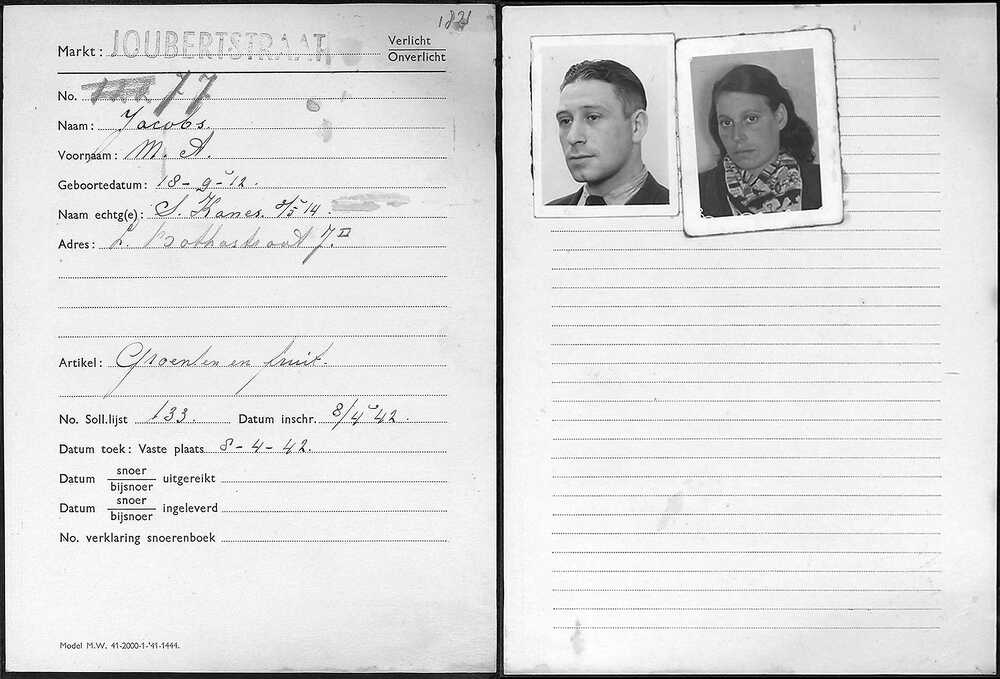 1821
Markt: JOUBERTSTRAAT Verlicht
Onverlicht
No. 77
Naam: Jacobs.
Voornaam: M. A.
Geboortedatum: 18-9-12.
Naam echtg(e): S. Kanes. 3/5 14.
Adres: L. Bothastraat 7.II
Artikel: Groenten en fruit.
No. Soll.lijst 133. Datum inschr. 8/4 42.
Datum toek: Vaste plaats 8-4-42.
Datum snoer uitgereikt
bijsnoer
Datum snoer ingeleverd
bijsnoer
No. verklaring snoerenboek
Model M.W. 41-2000-1-'41-1444.